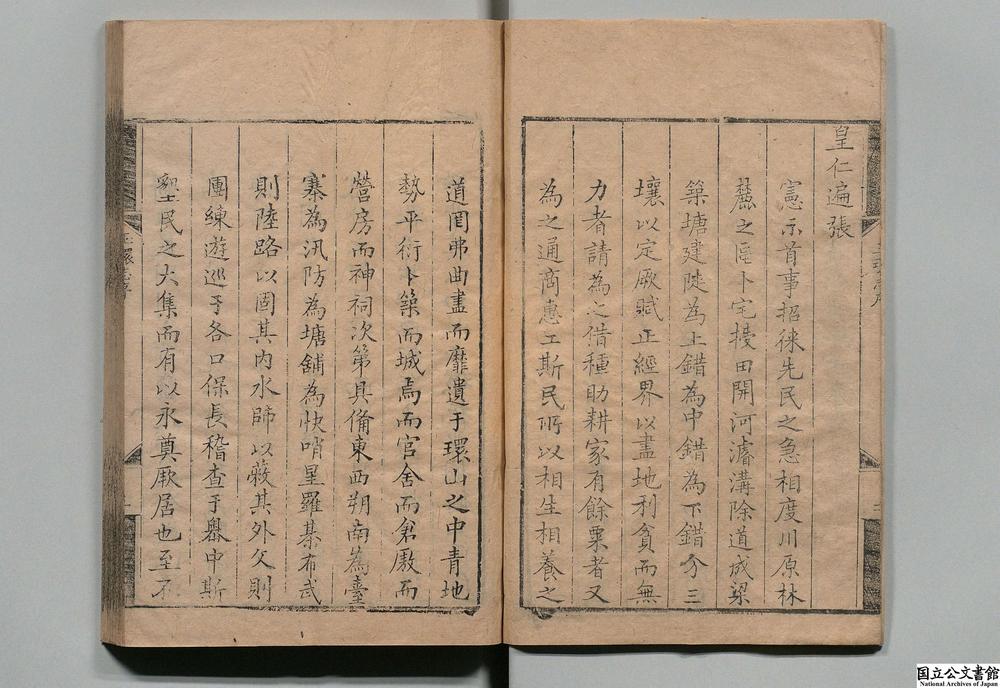 皇仁遍張
憲示首事招徠先民之急相度川原林
麓之區卜宅授田開河濬溝除道成梁
築塘建陡為上錯為中錯為下錯分三
壤以定厥賦正經界以盡地利貧而無
力者請為之借種助耕家有餘粟者又
為之通商惠工斯民所以相生相養之
道罔弗曲盡而靡遺于環山之中青地
勢平衍卜築而城焉而官舍而倉廒而
營房而神祠次第具備東西朔南為臺
寨為汛防為塘鋪為快哨星羅棊布武
則陸路以固其内水師以蔽其外文則
團練遊巡于各口保長稽查于墺中斯
墾民之大集而有以永奠厥居也至不
国立公文書館
National Archives of Japan